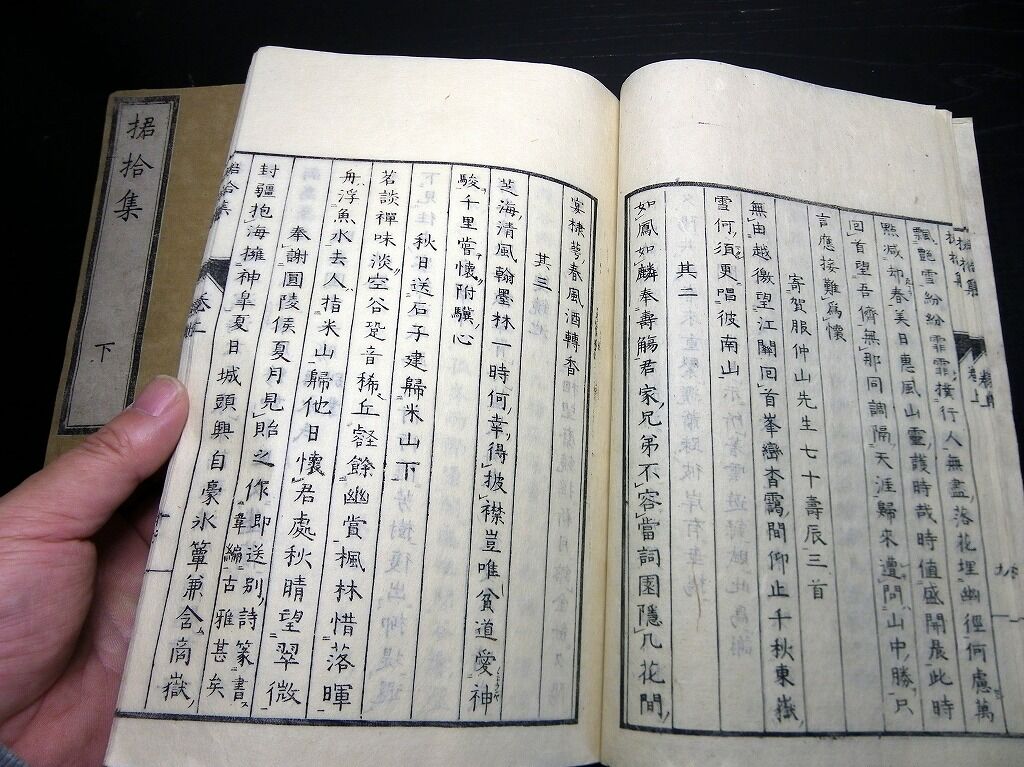 捃拾集
卷上
九
飄艶雪紛紛霏霏撲行人無盡落花埋幽徑何慮萬
點減却春美日惠風山靈護時哉時值盛開晨此時
回首望吾儕無那同調隔天涯歸來遭問山中勝只
言應接難爲懷
寄賀服仲山先生七十壽辰三首
無由越徼望江關回首峯巒杳靄間仰止千秋東嶽
雪何須更唱彼南山
其二
如鳳如麟奉壽觴君家兄弟不容當詞園隱几花間
宴棣萼春風酒轉香
其三
芝海清風翰墨林一時何幸得披襟豈唯貧道愛神
駿千里嘗懷附驥心
秋日送石子建歸米山下
茗談禪味淡空谷跫音稀丘壑餘幽賞楓林惜落暉
舟浮魚水去人指米山歸他日懷君處秋晴望翠微
奉謝圓陵侯夏月見貽之作即送別詩篆書
韋編古雅甚矣
封疆抱海擁神皐夏日城頭興自豪氷簟兼含商嶽
捃拾集
捃拾集
下